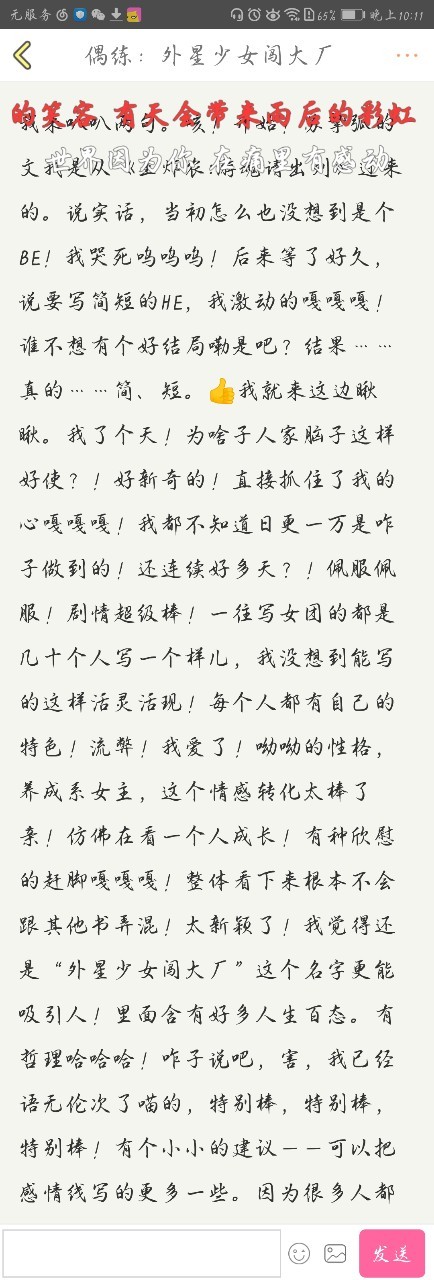 无服务 65% 晚上10:11
偶练：外星少女闯大厂
的笑容 有天会带来雨后的彩虹
我来叭叭两句。咳！开始！
世界因为你 在痛里有感动
文我是从
过来
的。说实话，当初怎么也没想到是个
BE！我哭死呜呜呜！后来等了好久，
说要写简短的HE，我激动的嘎嘎嘎！
谁不想有个好结局嘞是吧？结果……
真的……简、短。👍我就来这边瞅
瞅。我了个天！为啥子人家脑子这样
好使？！好新奇的！直接抓住了我的
心嘎嘎嘎！我都不知道日更一万是咋
子做到的！还连续好多天？！佩服佩
服！剧情超级棒！一往写女团的都是
几十个人写一个样儿，我没想到能写
的这样活灵活现！每个人都有自己的
特色！流弊！我爱了！呦呦的性格，
养成系女主，这个情感转化太棒了
亲！仿佛在看一个人成长！有种欣慰
的赶脚嘎嘎嘎！整体看下来根本不会
跟其他书弄混！太新颖了！我觉得还
是“外星少女闯大厂”这个名字更能
吸引人！里面含有好多人生百态。有
哲理哈哈哈！咋子说吧，害，我已经
语无伦次了喵的，特别棒，特别棒，
特别棒！有个小小的建议——可以把
感情线写的更多一些。因为很多人都
发送